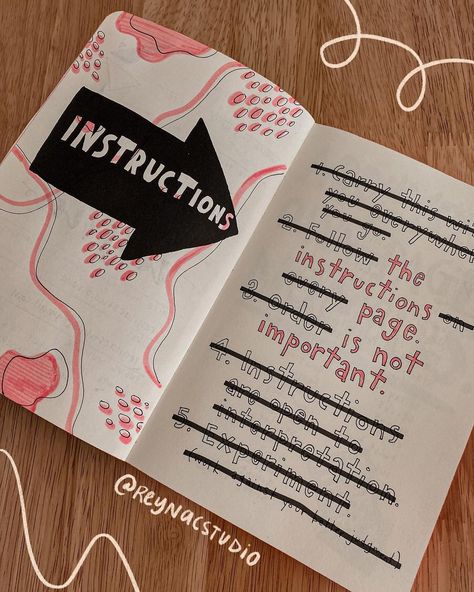 INSTRUCTIONS
1. Carry this with
you everywhere
you go.
2. Follow the
instructions on
every page.
3. Order is not
important.
4. Instructions
are open to
interpretation.
5. Experiment.
@REYNACSTUDIO